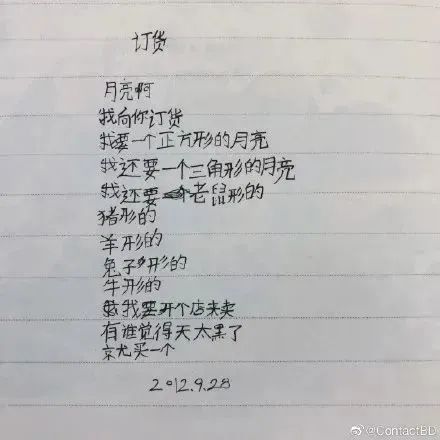 订货
月亮啊
我向你订货
我要一个正方形的月亮
我还要一个三角形的月亮
我还要老鼠形的
猪形的
羊形的
兔子形的
牛形的
我要开个店来卖
有谁觉得天太黑了
京尤买一个
2012.9.28
@ContactBD